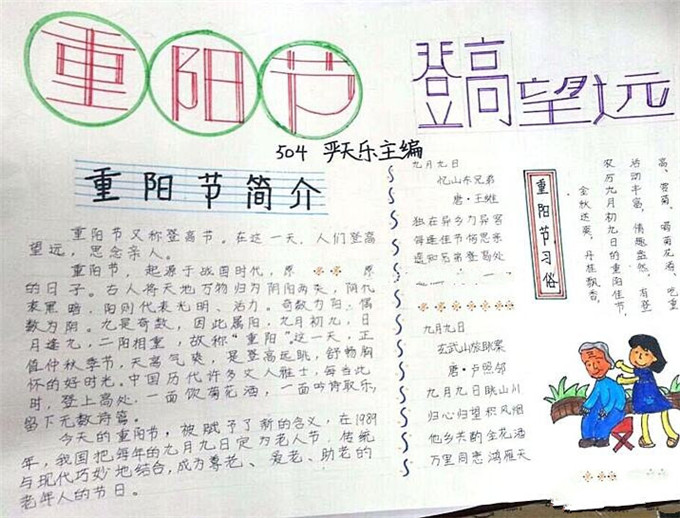 重阳节
登高望远
504 严天乐主编
重阳节简介
重阳节又称登高节。在这一天,人们登高
望远,思念亲人。
重阳节,起源于战国时代,原
的日子。古人将天地万物归为阴阳两类,阴代
表黑暗,阳则代表光明、活力。奇数为阳,偶
数为阴。九是奇数,因此属阳,九月初九,日
月逢九,二阳相重,故称“重阳”。这一天,正
值仲秋季节,天高气爽,是登高远眺,舒畅胸
怀的好时光。中国历代许多文人雅士,每当此
时,登上高处,一面饮菊花酒,一面吟诗取乐,
留下无数诗篇。
今天的重阳节,被赋予了新的含义,在1989
年,我国把每年的九月九日定为老人节,传统
与现代巧妙地结合,成为尊老、爱老、助老的
老年人的节日。
九月九日
忆山东兄弟
唐·王维
独在异乡为异客
每逢佳节倍思亲
遥知兄弟登高处
九月九日
玄武山旅眺
唐·卢照邻
九月九日眺山川
归心归望积风烟
他乡共酌金花酒
万里同悲鸿雁天
重阳节习俗
金秋送爽,丹桂飘香,
农历九月初九日的重阳佳节,
活动丰富,情趣盎然,有登
高、赏菊、喝菊花酒、吃重